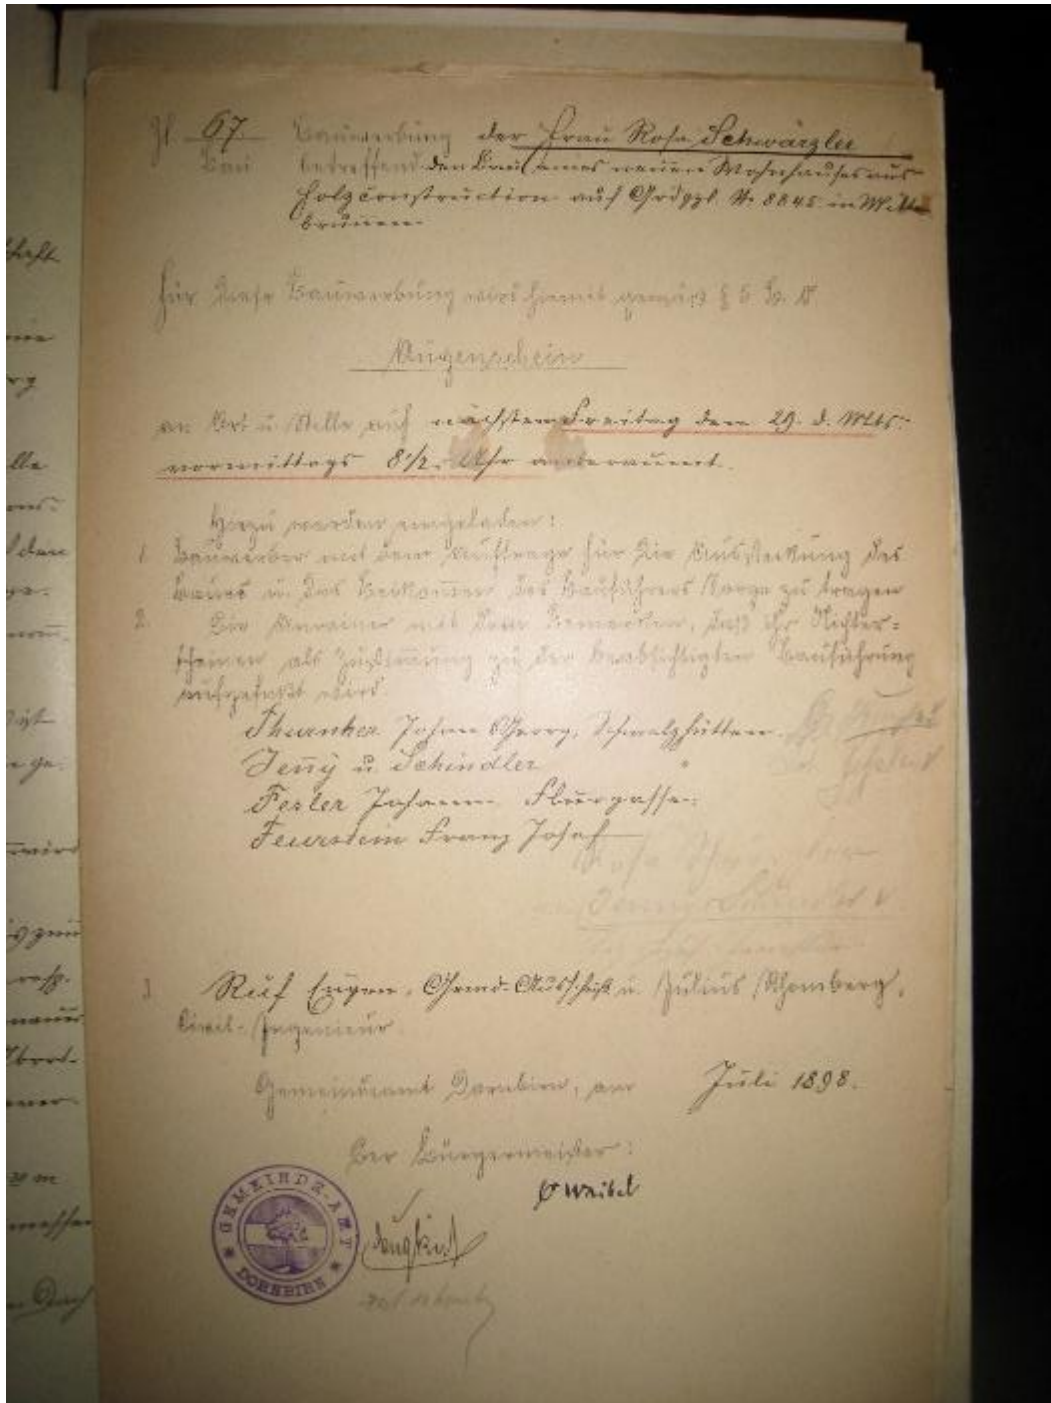 Zl. 67. Bauwerbung der Frau Rosa Schwärzler
Bau betreffend den Bau eines neuen Wohnhauses aus
Holzconstruction auf Grdpzl. Nr. 8845 in Mitte
brunnen
Für diese Bauwerbung wird hiemit gemäß § 5 B. O.
Augenschein
an Ort u. Stelle auf nächsten Freitag den 29. d. Mts.
vormittags 8 1/2 Uhr anberaumt.
Hiezu werden eingeladen:
1. Bauwerber mit dem Auftrage für die Aussteckung des
Baues u. das Beikom̅en des Bauführers Sorge zu tragen
2. Die Anrainer mit dem Bemerken, daß ihr Nichter=
scheinen als Zustim̅ung zu der beabsichtigten Bauführung
aufgefaßt wird.
Thurnher Johann Georg, Schmalzhütten
Jen̅y u. Schindler
Fesler Johann Flurgasse
Feurstein Franz Josef
Rosa Schwärzler
Jenny Schindler
3 Ruf Eugen, Gemd. Ausschuß u. Julius Rhomberg,
Civil-Ingenieur
Gemeindeamt Dornbirn, am Juli 1898.
Der Bürgermeister:
Waibel
GEMEINDE-AMT
DORNBIRN